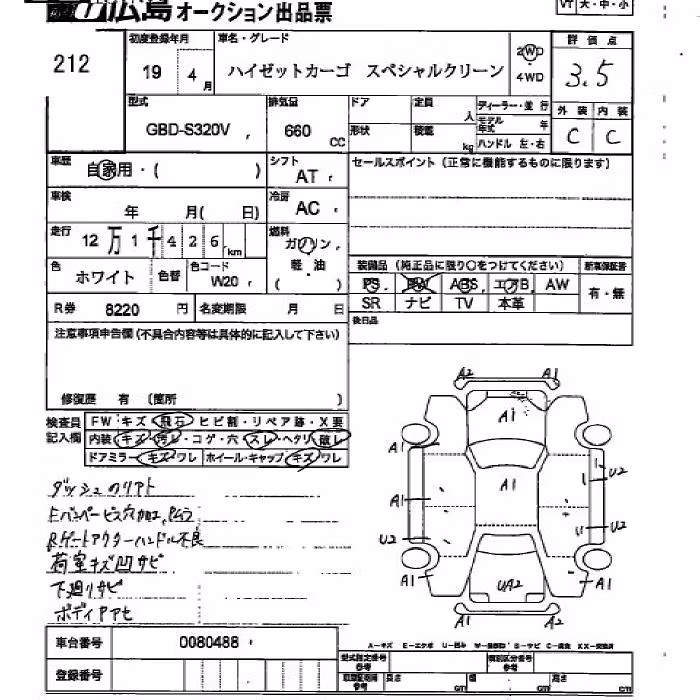 広島 オークション出品票
VT 大・中・小
212
初度登録年月
19 4月
車名・グレード
ハイゼットカーゴ スペシャルクリーン
2WD
4WD
評価点
3.5
型式
GBD-S320V
排気量
660 CC
ドア
定員 人
ディーラー・並行
モデル年式 年
形状
積載 kg
ハンドル 左・右
外装 内装
C C
車歴
自家用・( )
シフト
AT
セールスポイント (正常に機能するものに限ります)
車検
年 月( 日)
冷房
AC
走行
12万1千426km
燃料
ガソリン
軽・油
( )
色
ホワイト
色替
色コード
W20
装備品 (純正品に限り○をつけてください)
新車保証書
PS PW ABS エアB AW
SR ナビ TV 本革
有・無
R券 8220 円
名変期限 月 日
後日品
注意事項申告欄(不具合内容等は具体的に記入して下さい)
修復歴 有 (箇所 )
検査員記入欄
FW キズ・飛石・ヒビ割・リペア跡・X要
内装・キズ・汚レ・コゲ・穴・スレ・ヘタリ・破レ
ドアミラー・キズ・ワレ ホイール・キャップ・キズ・ワレ
A2 A1
A1
A1
A1 A1 U2
U2 U2
A1 UA2 A1
A1 A2
荷室キズ凹サビ
下廻りサビ
車台番号
0080488
A-キズ E-エクボ U-凹み
登録番号
型式指定番号 参考
類別区分番号 参考
長さ cm 幅 cm 高さ cm